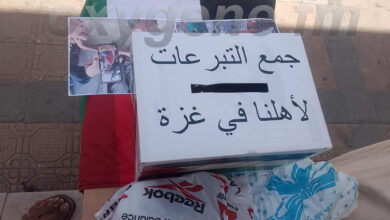 oxygene.ma
جمع التبرعات
لأهلنا في غزة
Reebok